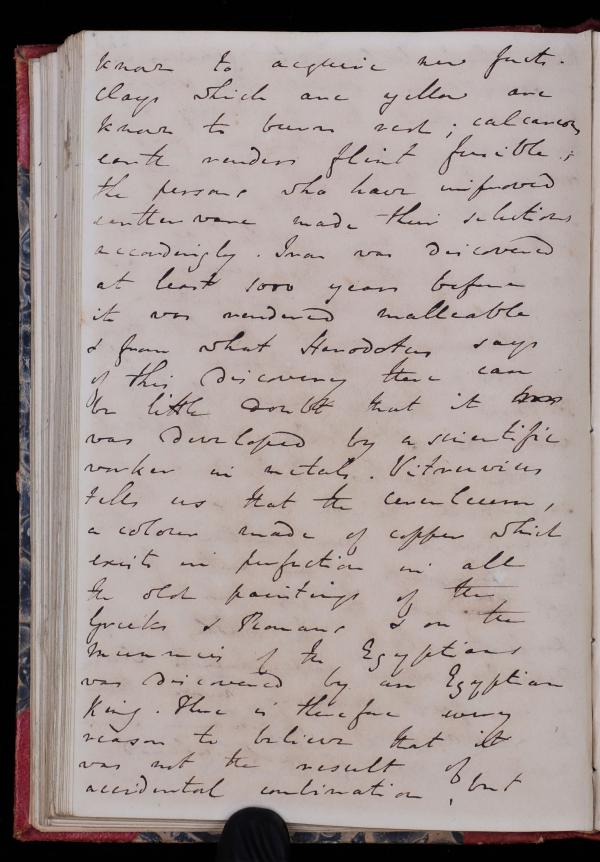 known to acquire new facts.
Clays which are yellow are
known to burn red; calcareous
earth renders flint fusible;
the persons who have improved
earthen ware made their selections
accordingly. Iron was discovered
at least 1000 years before
it was rendered malleable
& from what Herodotus says
of this discovery there can
be little doubt that it
was developed by a scientific
worker in metals. Vitruvius
tells us that the ceruleum,
a colour made of copper which
exists in perfection in all
the old paintings of the
Greeks & Romans & on the
mummies of the Egyptians
was discovered by an Egyptian
King. There is therefore every
reason to believe that it
was not the result of
accidental combination, but